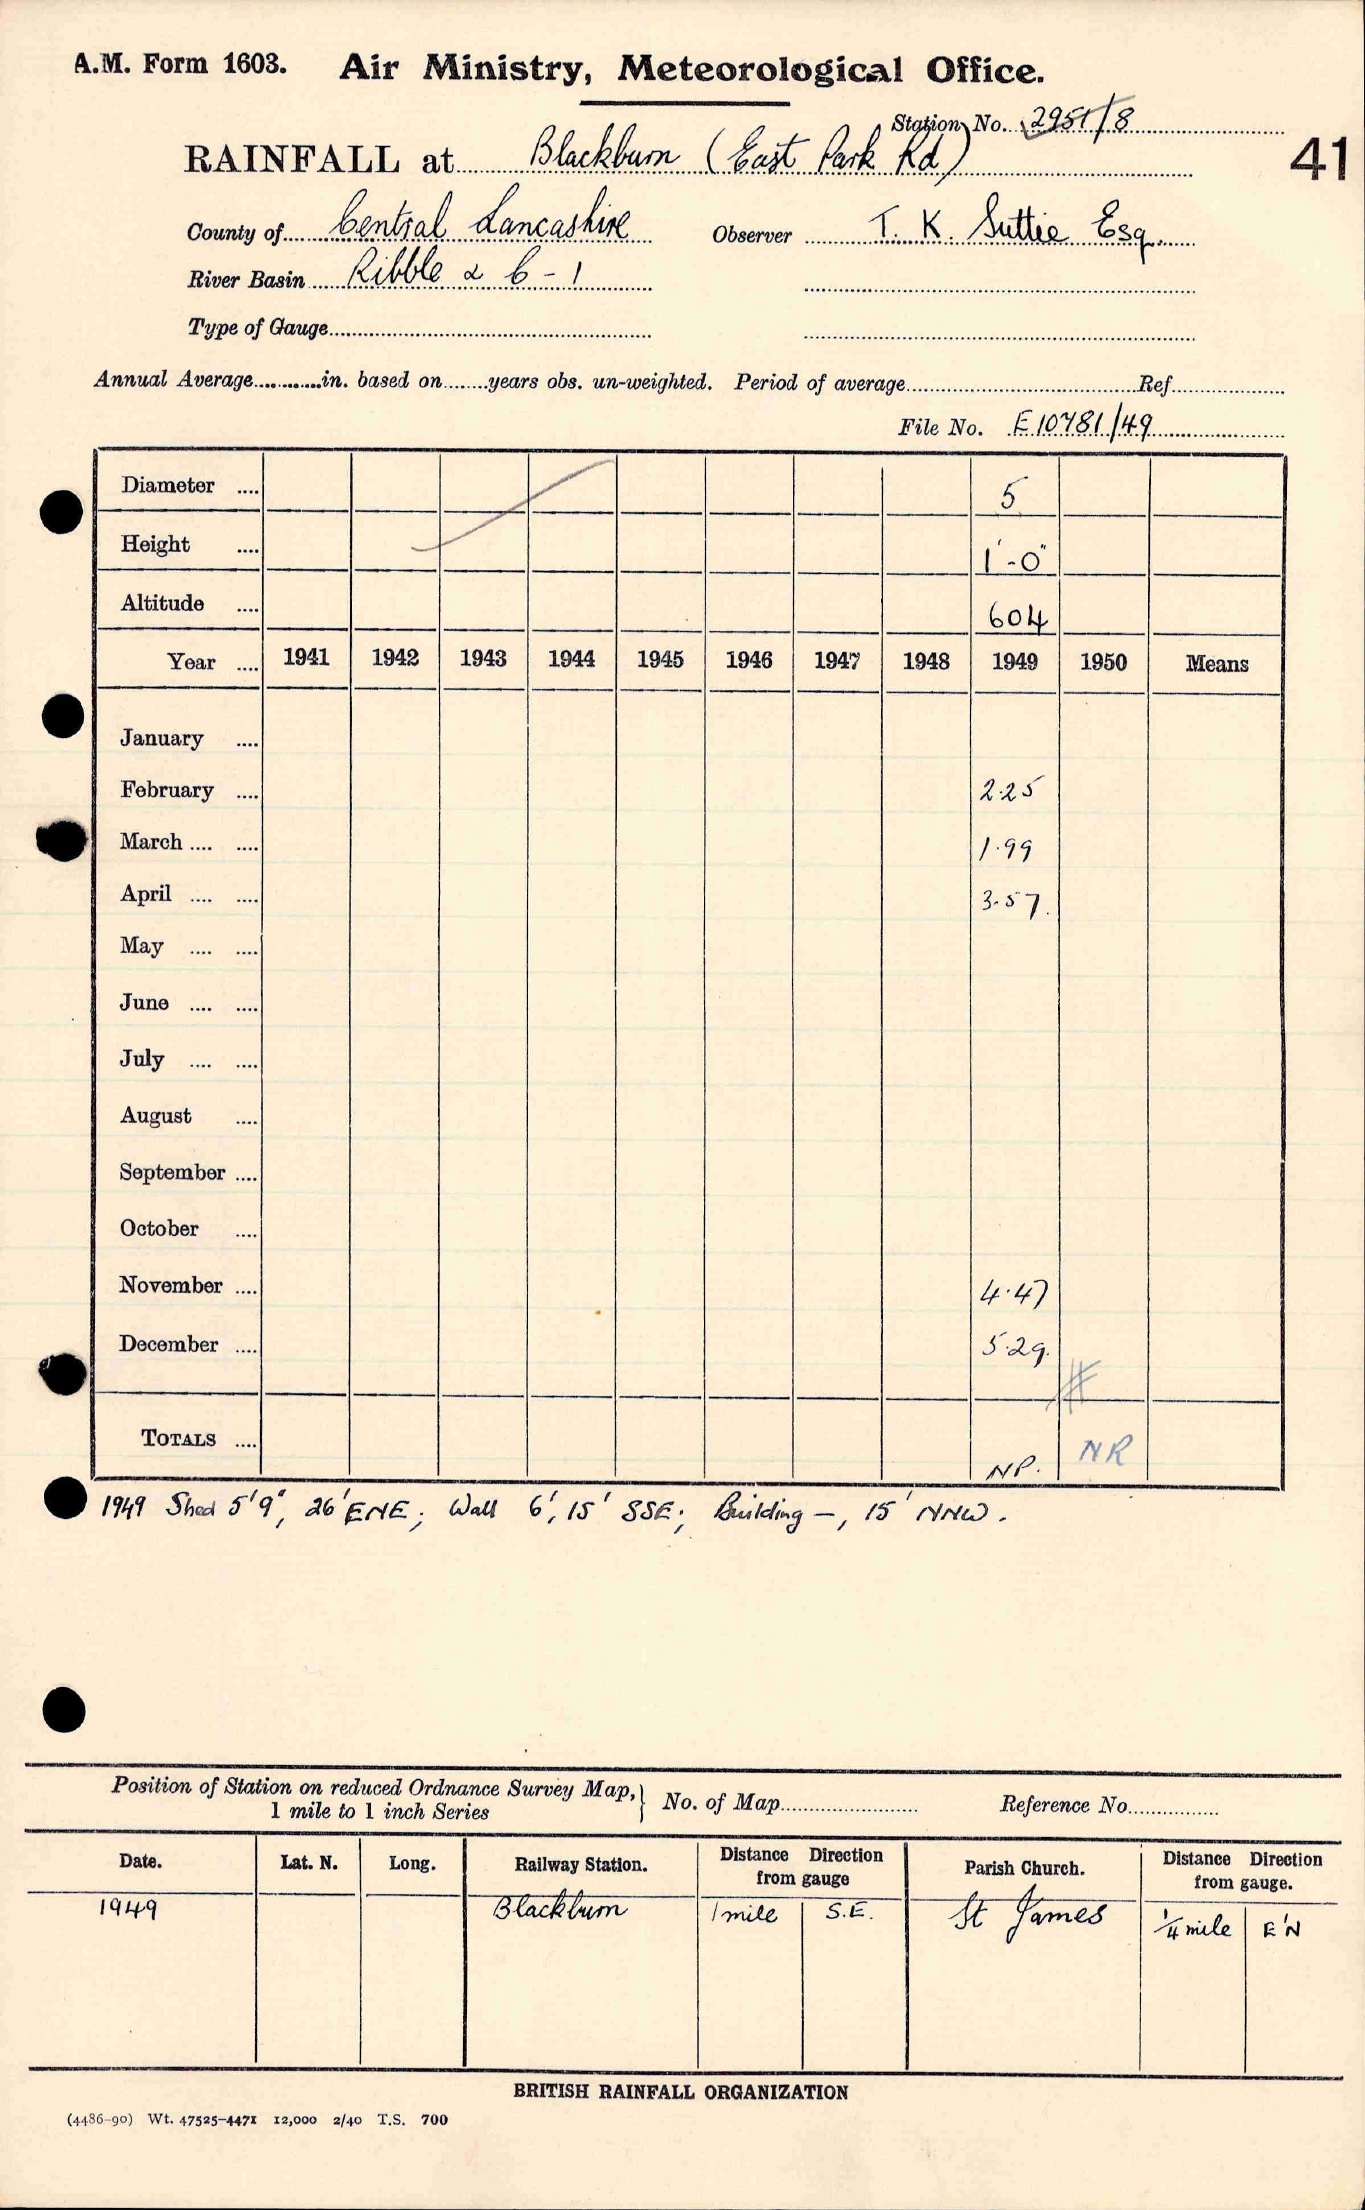 A.M. Form 1603. Air Ministry, Meteorological Office.
Station No. 2951/8
RAINFALL at Blackburn (East Park Rd)
41
County of Central Lancashire Observer T. K. Suttie Esq.
River Basin Ribble & 6-1
Type of Gauge
Annual Average............in. based on........years obs. un-weighted. Period of average Ref
File No. E10781/49
Diameter .... 5
Height .... 1'-0"
Altitude .... 604
Year .... 1941 1942 1943 1944 1945 1946 1947 1948 1949 1950 Means
January ....
February .... 2.25
March .... .... 1.99
April .... .... 3.57.
May .... ....
June .... ....
July .... ....
August ....
September ....
October ....
November .... 4.47
December .... 5.29.
TOTALS .... NP. NR
1949 Shed 5'9", 26' ENE; Wall 6', 15' SSE; Building —, 15' NNW.
Position of Station on reduced Ordnance Survey Map,} No. of Map Reference No.
1 mile to 1 inch Series
Date. Lat. N. Long. Railway Station. Distance Direction from gauge Parish Church. Distance Direction from gauge.
1949 Blackburn 1 mile S.E. St James 1/4 mile E'N
BRITISH RAINFALL ORGANIZATION
(4486-90) Wt. 47525-4471 12,000 2/40 T.S. 700